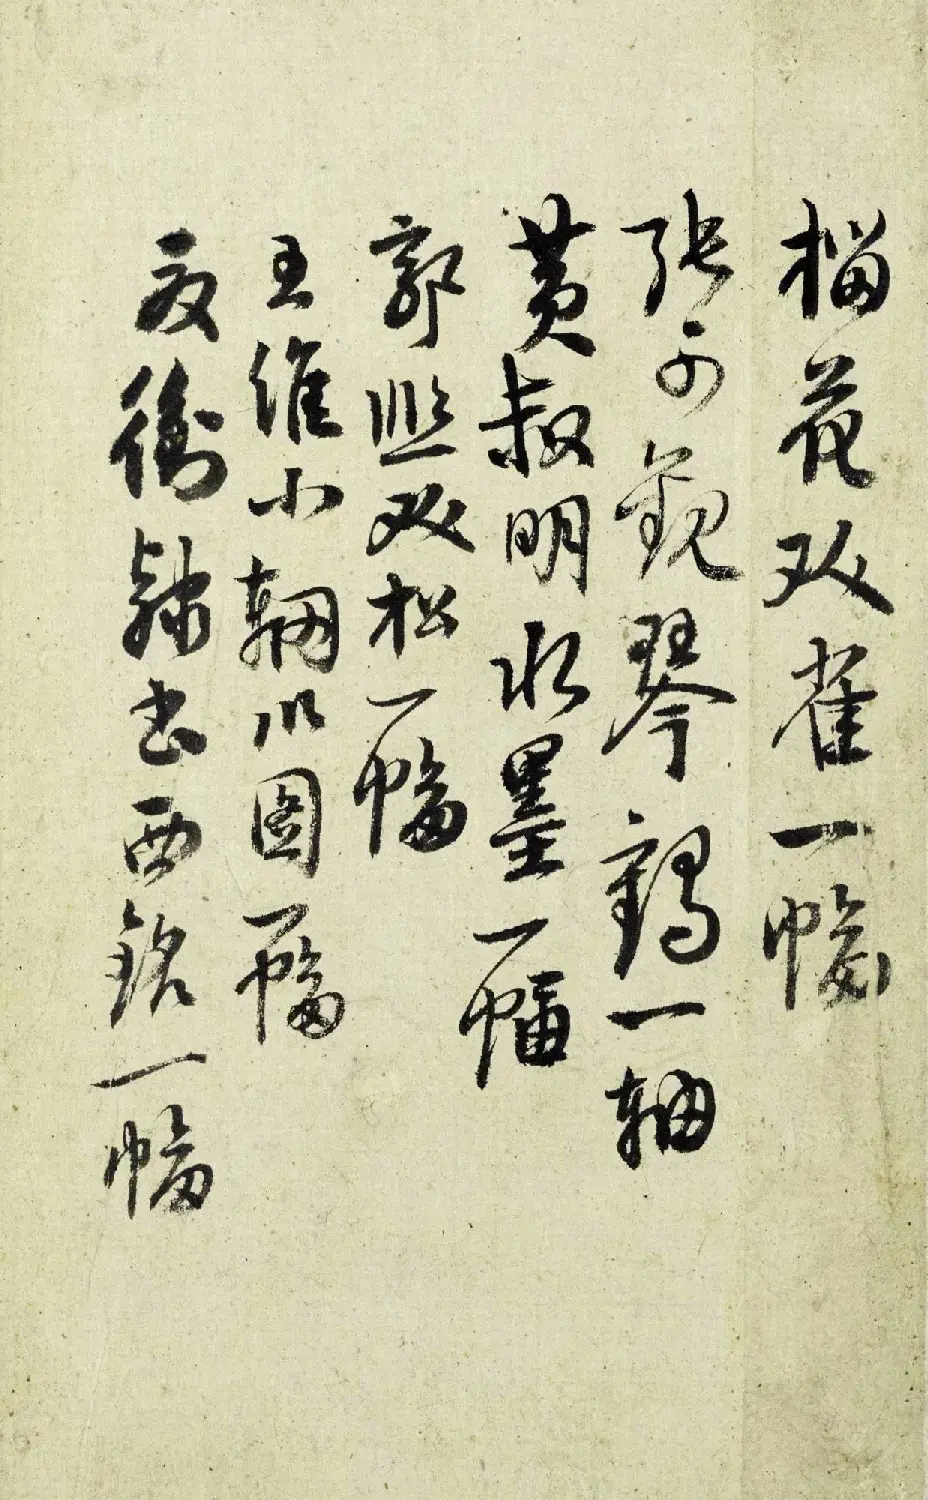 榴花双雀一幅
张可观琴鹤一轴
黄叔明水墨一幅
郭熙双松一幅
王维小辋川图一幅
夏衡隸书西铭一幅